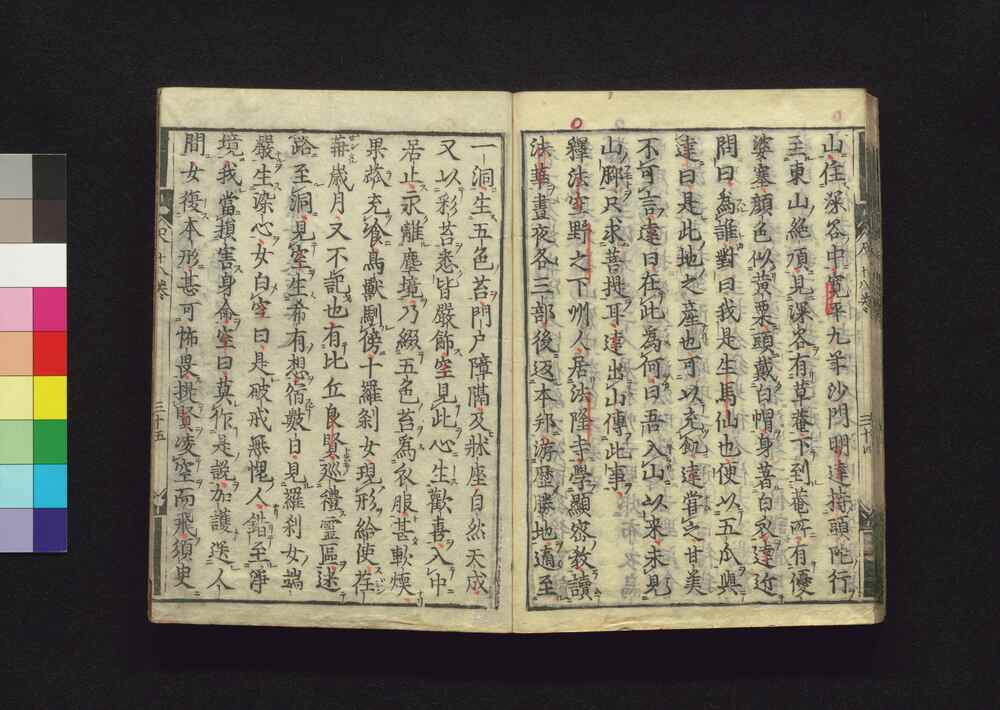 山住深谷中寬平九年沙門明達持頭陀行
至東山絶頂見深谷有草菴下到菴所有優
婆塞顔色似黄栗頭戴白帽身著白衣達近
問曰為誰對曰我是生馬仙也便以五瓜與
達曰是此地之産也可以充飢達甞之甘美
不可言達曰在此為何曰吾入山以来未見
山脚只求菩提耳達出山傳此事
釋法空野之下州人居法隆寺學顯密教讀
法華晝夜各三部後返本邦游歴勝地適至
一洞生五色苔門户障隔及牀座自然天成
又以彩苔悉皆嚴飾空見此心生歡喜入中
居止永離塵境乃綴五色苔為衣服甚軟煖
果蓏充飡鳥獣馴傍十羅刹女現形給使荏
苒歳月又不記也有比丘良賢巡禮靈區迷
路至洞見空生希有想宿數日見羅刹女端
嚴生染心女白空曰是破戒無慙人錯至淨
境我當損害身命空曰莫作是說加護送人
間女復本形甚可怖畏提賢凌空而飛須史
十八巻
三十四
十八巻
三十五